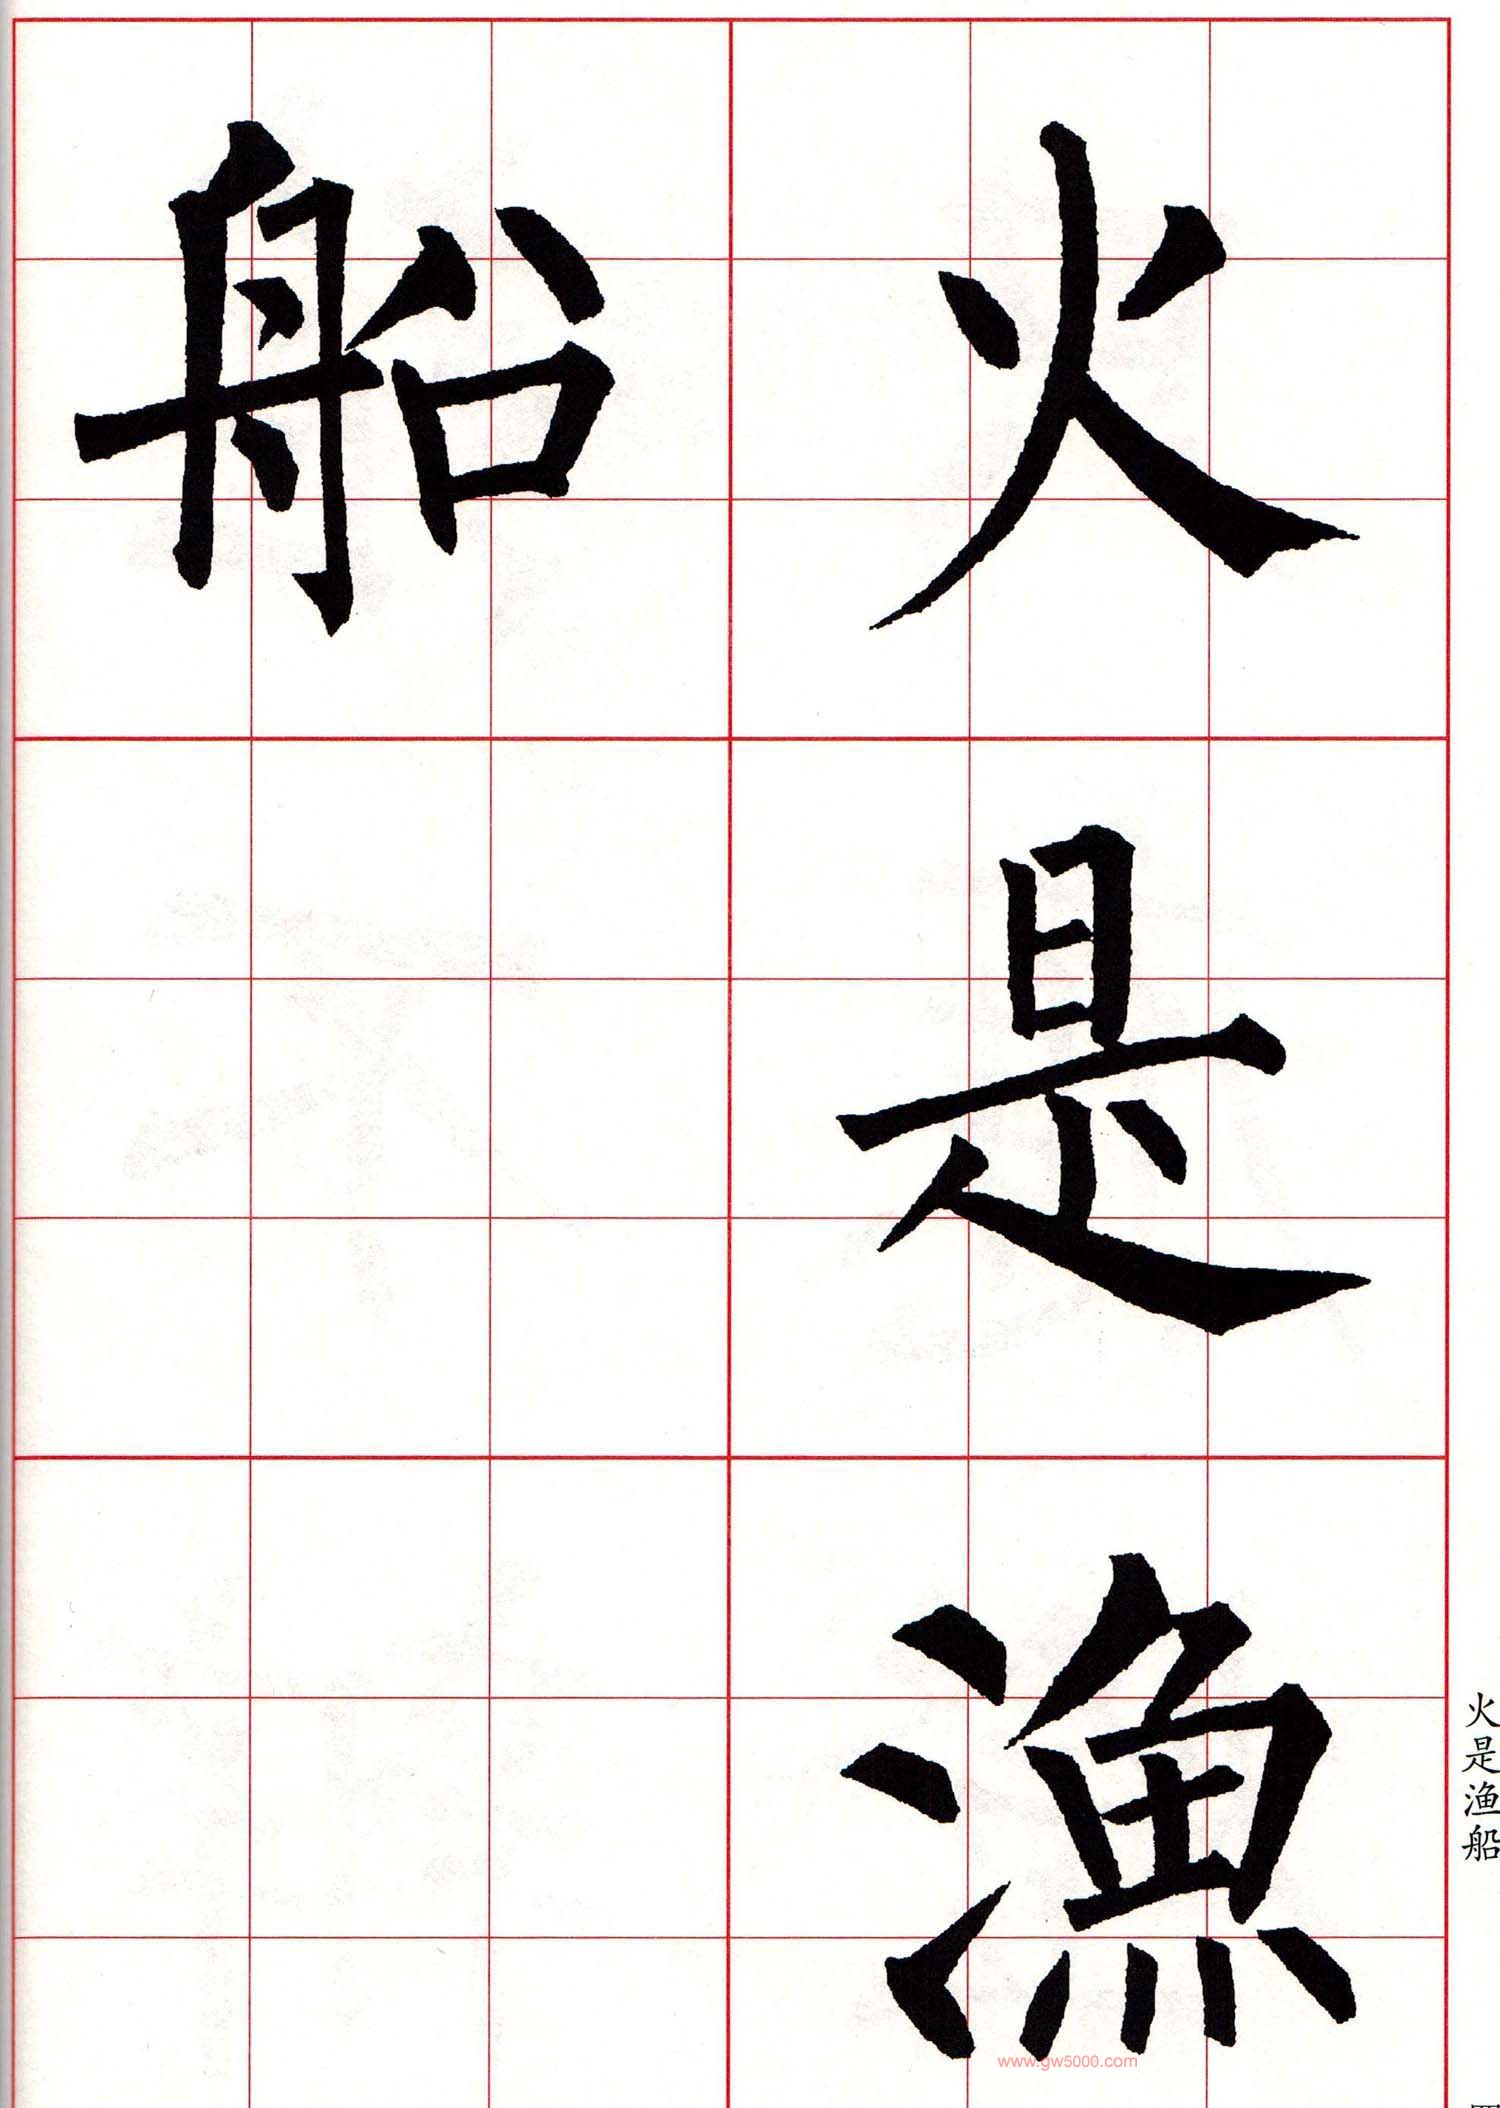 火是漁
船
火是渔船
www.gw5000.com